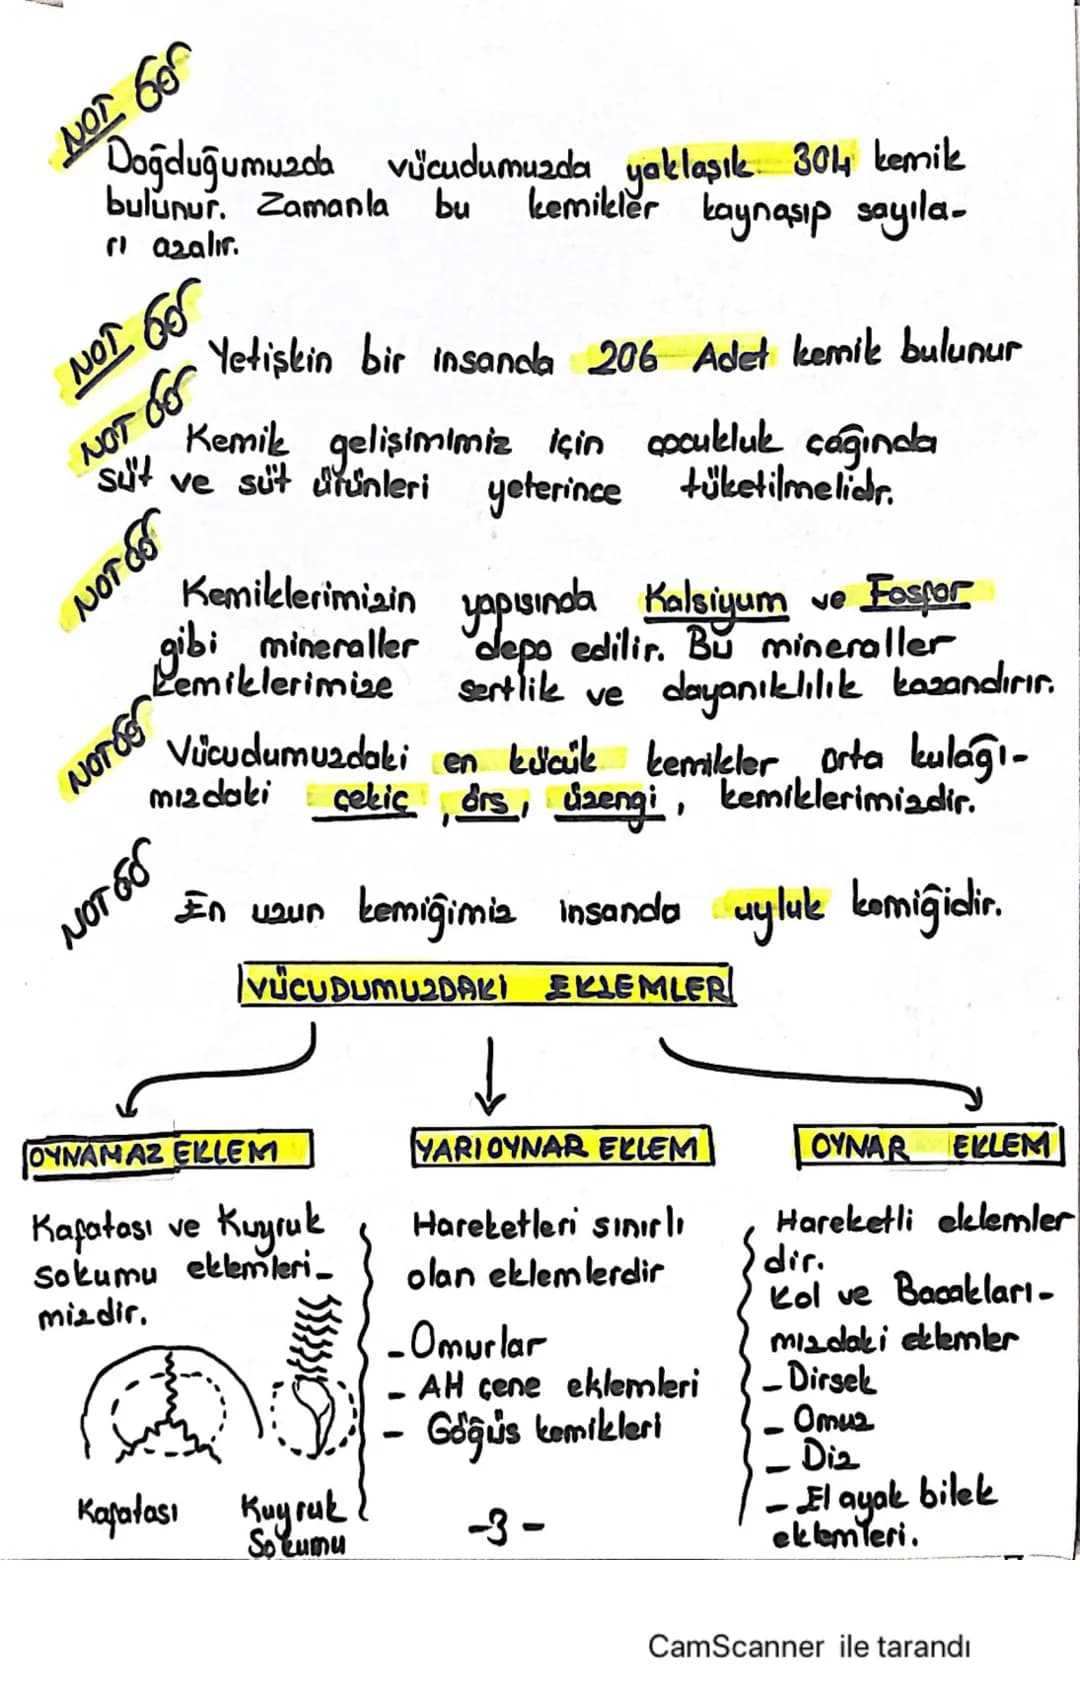 NOT
Doğduğumuzda vücudumuzda yaklaşık 304 kemik
bulunur. Zamanla bu kemikler kaynaşıp sayıla-
rı azalır.
NOT
Yetişkin bir insanda 206 Adet kemik bulunur
NOT
Kemik gelişimimiz için çocukluk çağında
süt ve süt ürünleri yeterince tüketilmelidr.
NOT
Kemiklerimizin yapısında Kalsiyum ve Fosfor
gibi mineraller depo edilir. Bu mineraller
kemiklerimize sertlik ve dayanıklılık kazandırır.
NOT
Vücudumuzdaki en küçük kemikler orta kulağı-
mızdaki çekiç, örs, üzengi, kemiklerimizdir.
NOT
En uzun kemiğimiz insanda uyluk kemiğidir.
VÜCUDUMUZDAKİ EKLEMLER
OYNAMAZ EKLEM
Kafatası ve Kuyruk
sokumu eklemleri-
mizdir.
Kafatası
Kuyruk
Sokumu
YARI OYNAR EKLEM
Hareketleri sınırlı
olan eklemlerdir
- Omurlar
- Alt çene eklemleri
- Göğüs kemikleri
OYNAR EKLEM
Hareketli eklemler
dir.
Kol ve Bacakları-
mızdaki eklemler
- Dirsek
- Omuz
- Diz
- El ayak bilek
eklemleri.
-3-
CamScanner ile tarandı